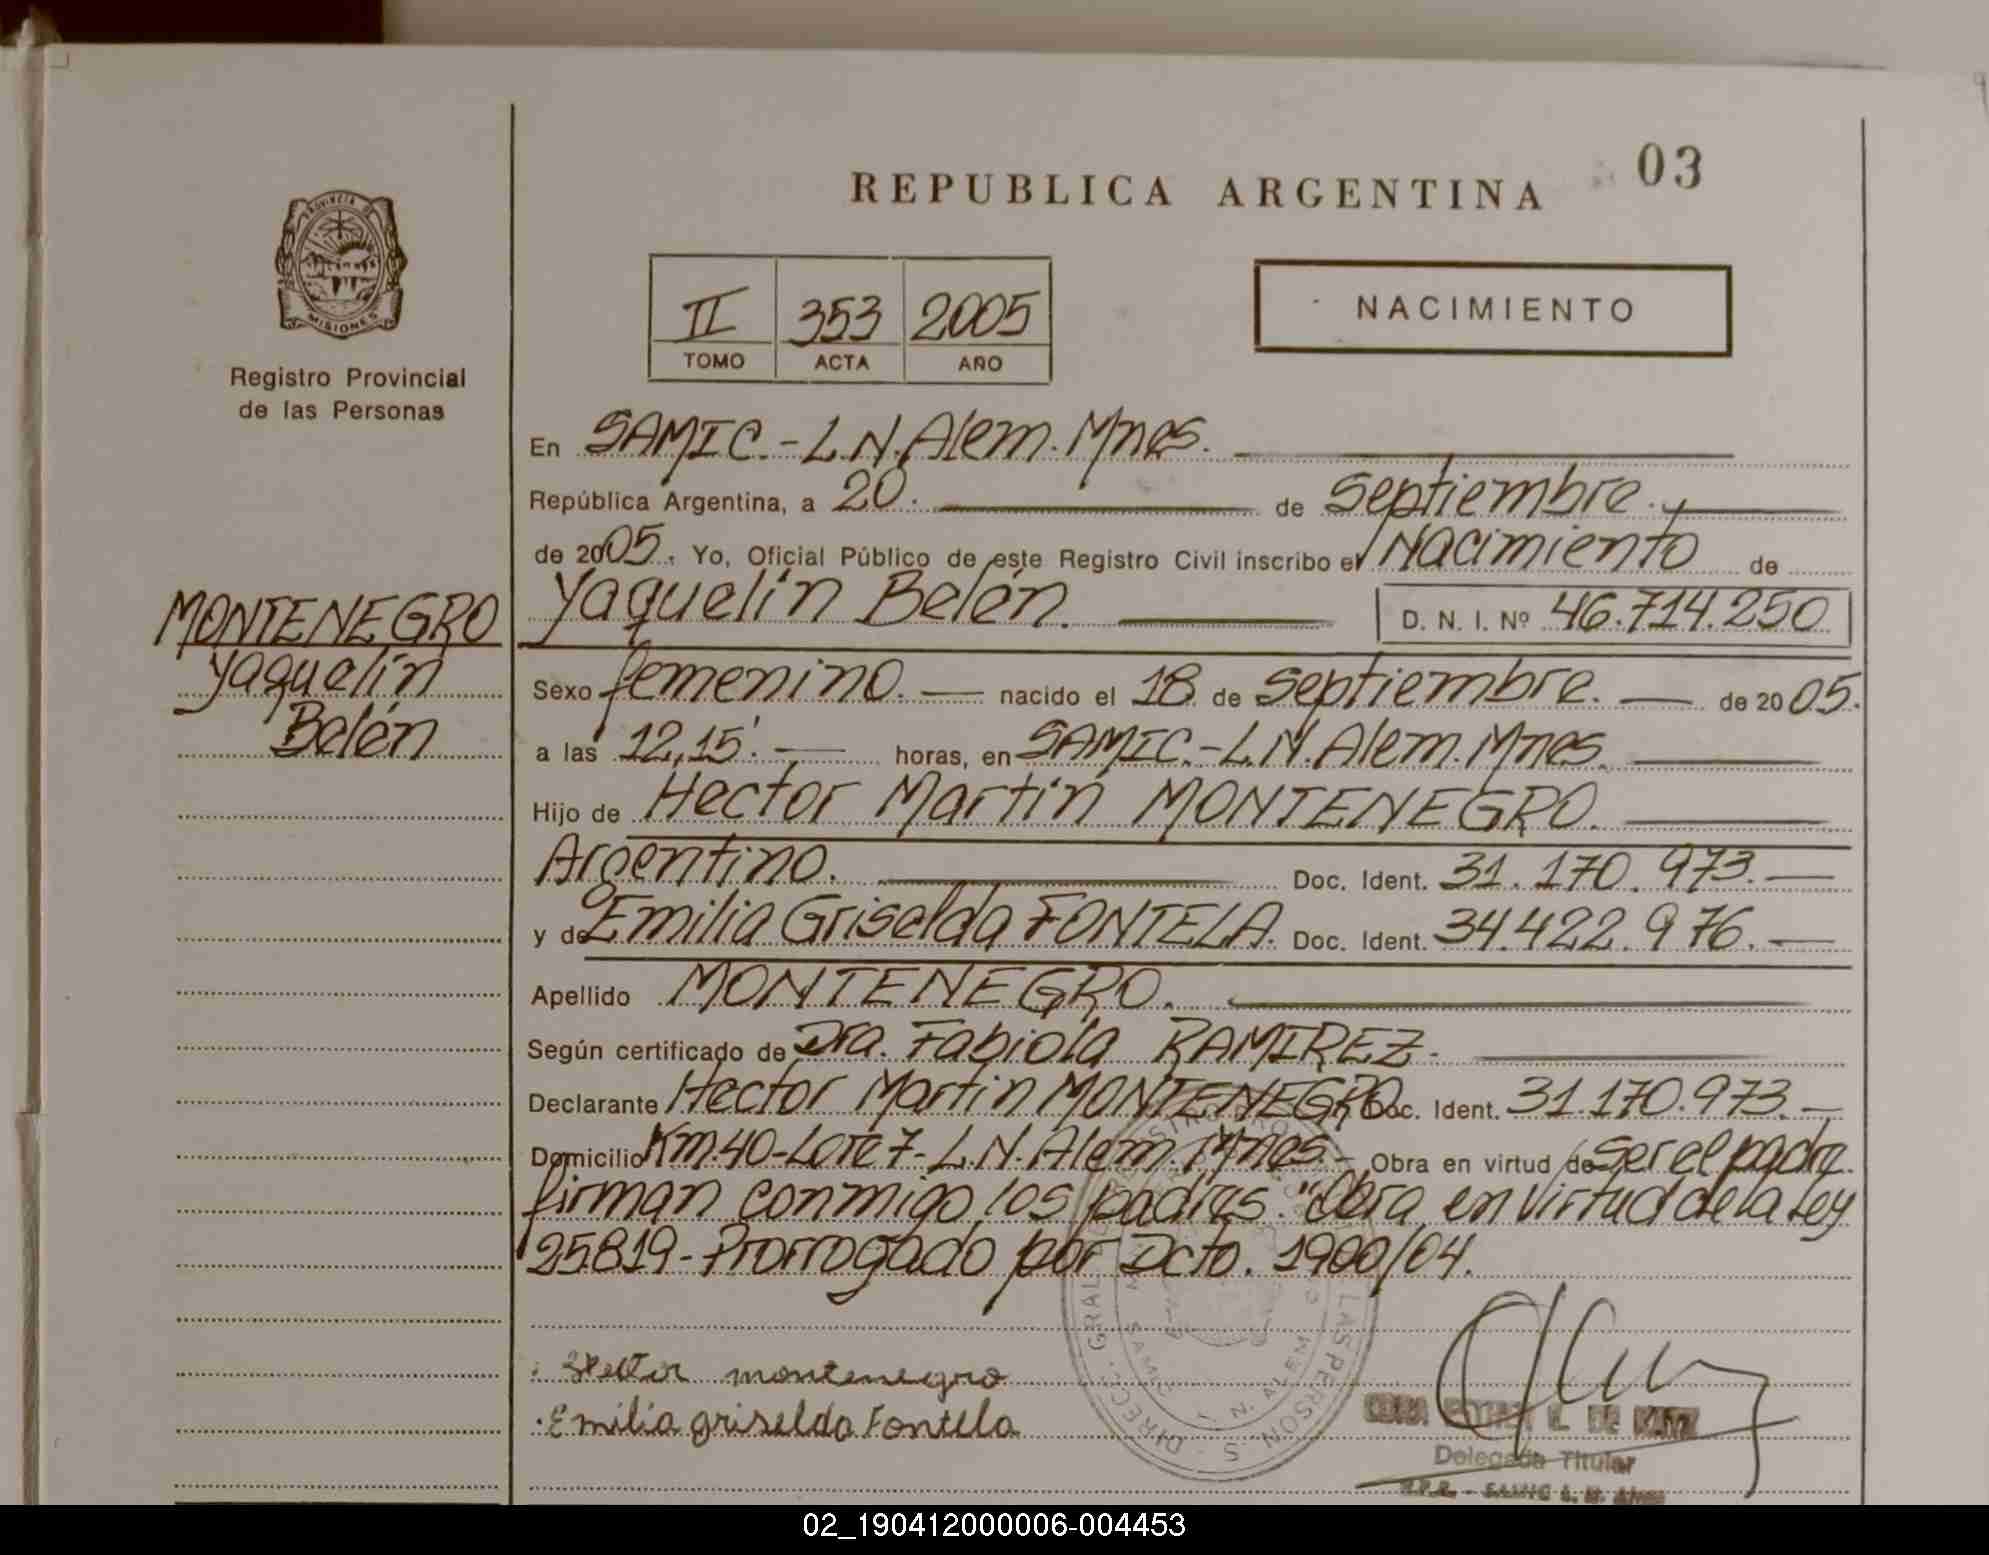 03
REPUBLICA ARGENTINA
PROVINCIA DE
MISIONES
Registro Provincial
de las Personas
II 353 2005
TOMO ACTA AÑO
NACIMIENTO
En SAMIC.-L.N.Alem.Mnes.
República Argentina, a 20. de Septiembre.
de 2005. Yo, Oficial Público de este Registro Civil inscribo el Nacimiento de
Yaquelín Belén. D. N. I. Nº 46.714.250
MONTENEGRO
Yaquelín
Belén
Sexo femenino. nacido el 18 de Septiembre. de 2005.
a las 12,15'. horas, en SAMIC.-L.N.Alem.Mnes.
Hijo de Hector Martín MONTENEGRO.
Argentino. Doc. Ident. 31.170.973.
y de Emilia Griselda FONTELA. Doc. Ident. 34.422.976.
Apellido MONTENEGRO.
Según certificado de Dra. Fabiola RAMIREZ.
Declarante Hector Martin MONTENEGRO Doc. Ident. 31.170.973.
Domicilio Km.40-Lote 7-L.N.Alem.Mnes.- Obra en virtud de ser el padre.
firman conmigo los padres. "Obra en virtud de la Ley
25819-Prorrogado por Dcto. 1900/04.
Hector montenegro
Emilia griselda Fontela
DIRECC. GRAL. LAS PERSON S
SAMIC L. N. ALEM
DE
Delegada Titular
R.P.P. - SAMIC L. N. Alem
02_190412000006-004453